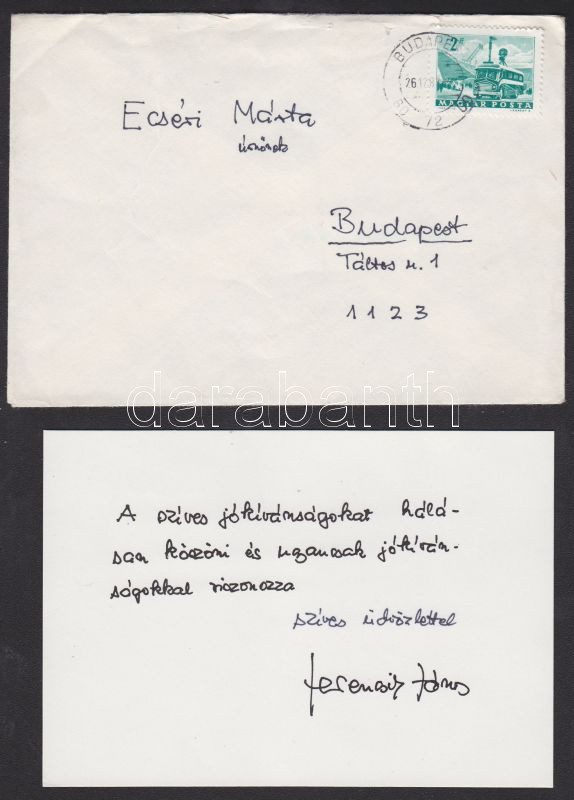 BUDAPEST 72
2 Ft
MAGYAR POSTA
Ecséri Márta
úrnőnek
Budapest
Táltos u. 1
1123
darabanth
A szíves jókívánságokat hálá-
san köszöni és ugancsak jókíván-
ságokkal viszonozza
szíves üdvözlettel
Ferencsik János